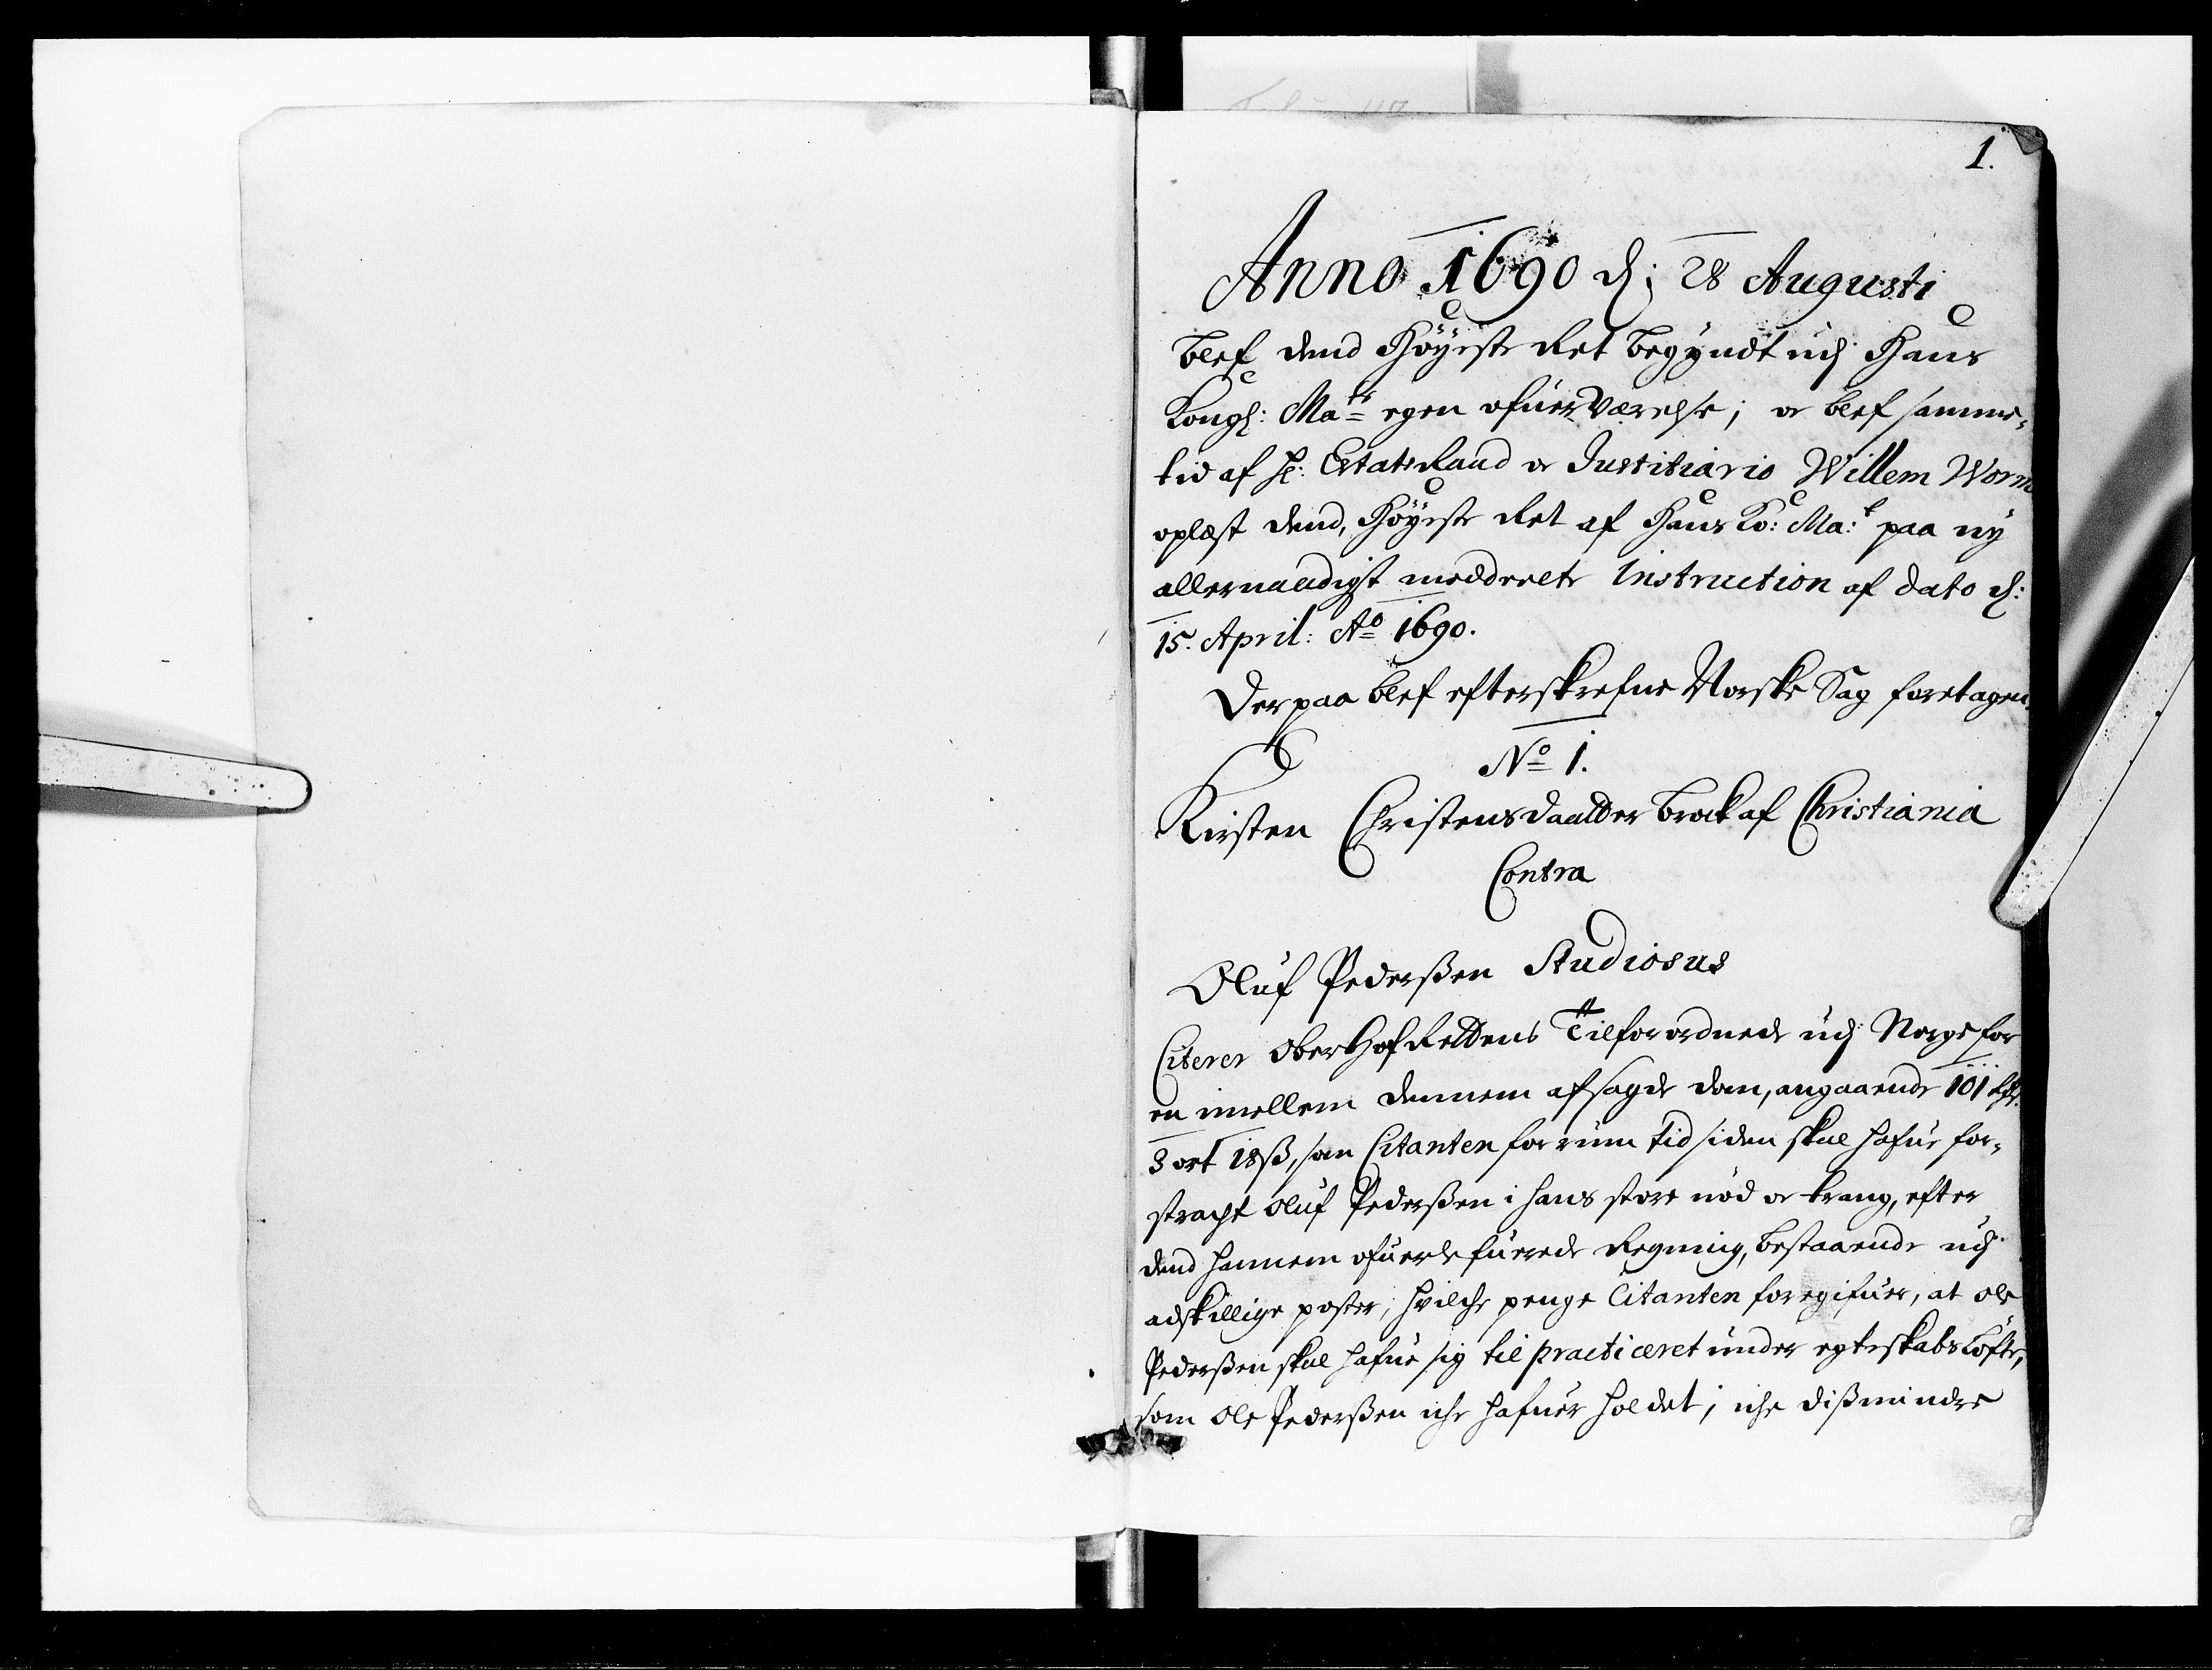 1.
Anno 1690 d: 28 Augusti
blef dend Höyeste Ret begyndt udj Hans
Kongl: Ma^ts egen ofuerværelse; oc blef samme-
tid af H: Etatz Raad oc Justitiario Willem Worm
oplæst dend, Höyeste Ret af Hans Ko: Ma:^t paa ny
allernaadigst meddeelte Instruction af dato d:
15. April: A^o 1690.
Der paa blef efterskrefne Norske Sag foretagen.
N^o 1.
Kirsten Christensdaatter Brock af Christiania
Contra
Oluf Pederßen Studiosus
Citerer OberHofRettens Tilforordnede udj Norge for
en imellem dennem afsagde dom, angaaende 101 Rdr.
3 ort 18 ß, som Citanten for rum tid siden skal hafue for-
stragt Oluf Pederßen i hans store nød oc trang, efter
dend hannem ofuerlefuerede Regning, bestaaende udj
adskillige poster; hvilche penge Citanten foregifuer, at Ole
Pederßen skal hafue sig til practiceret under egteskabs Løfte,
som Ole Pederßen iche hafuer holdet; iche dißmindre